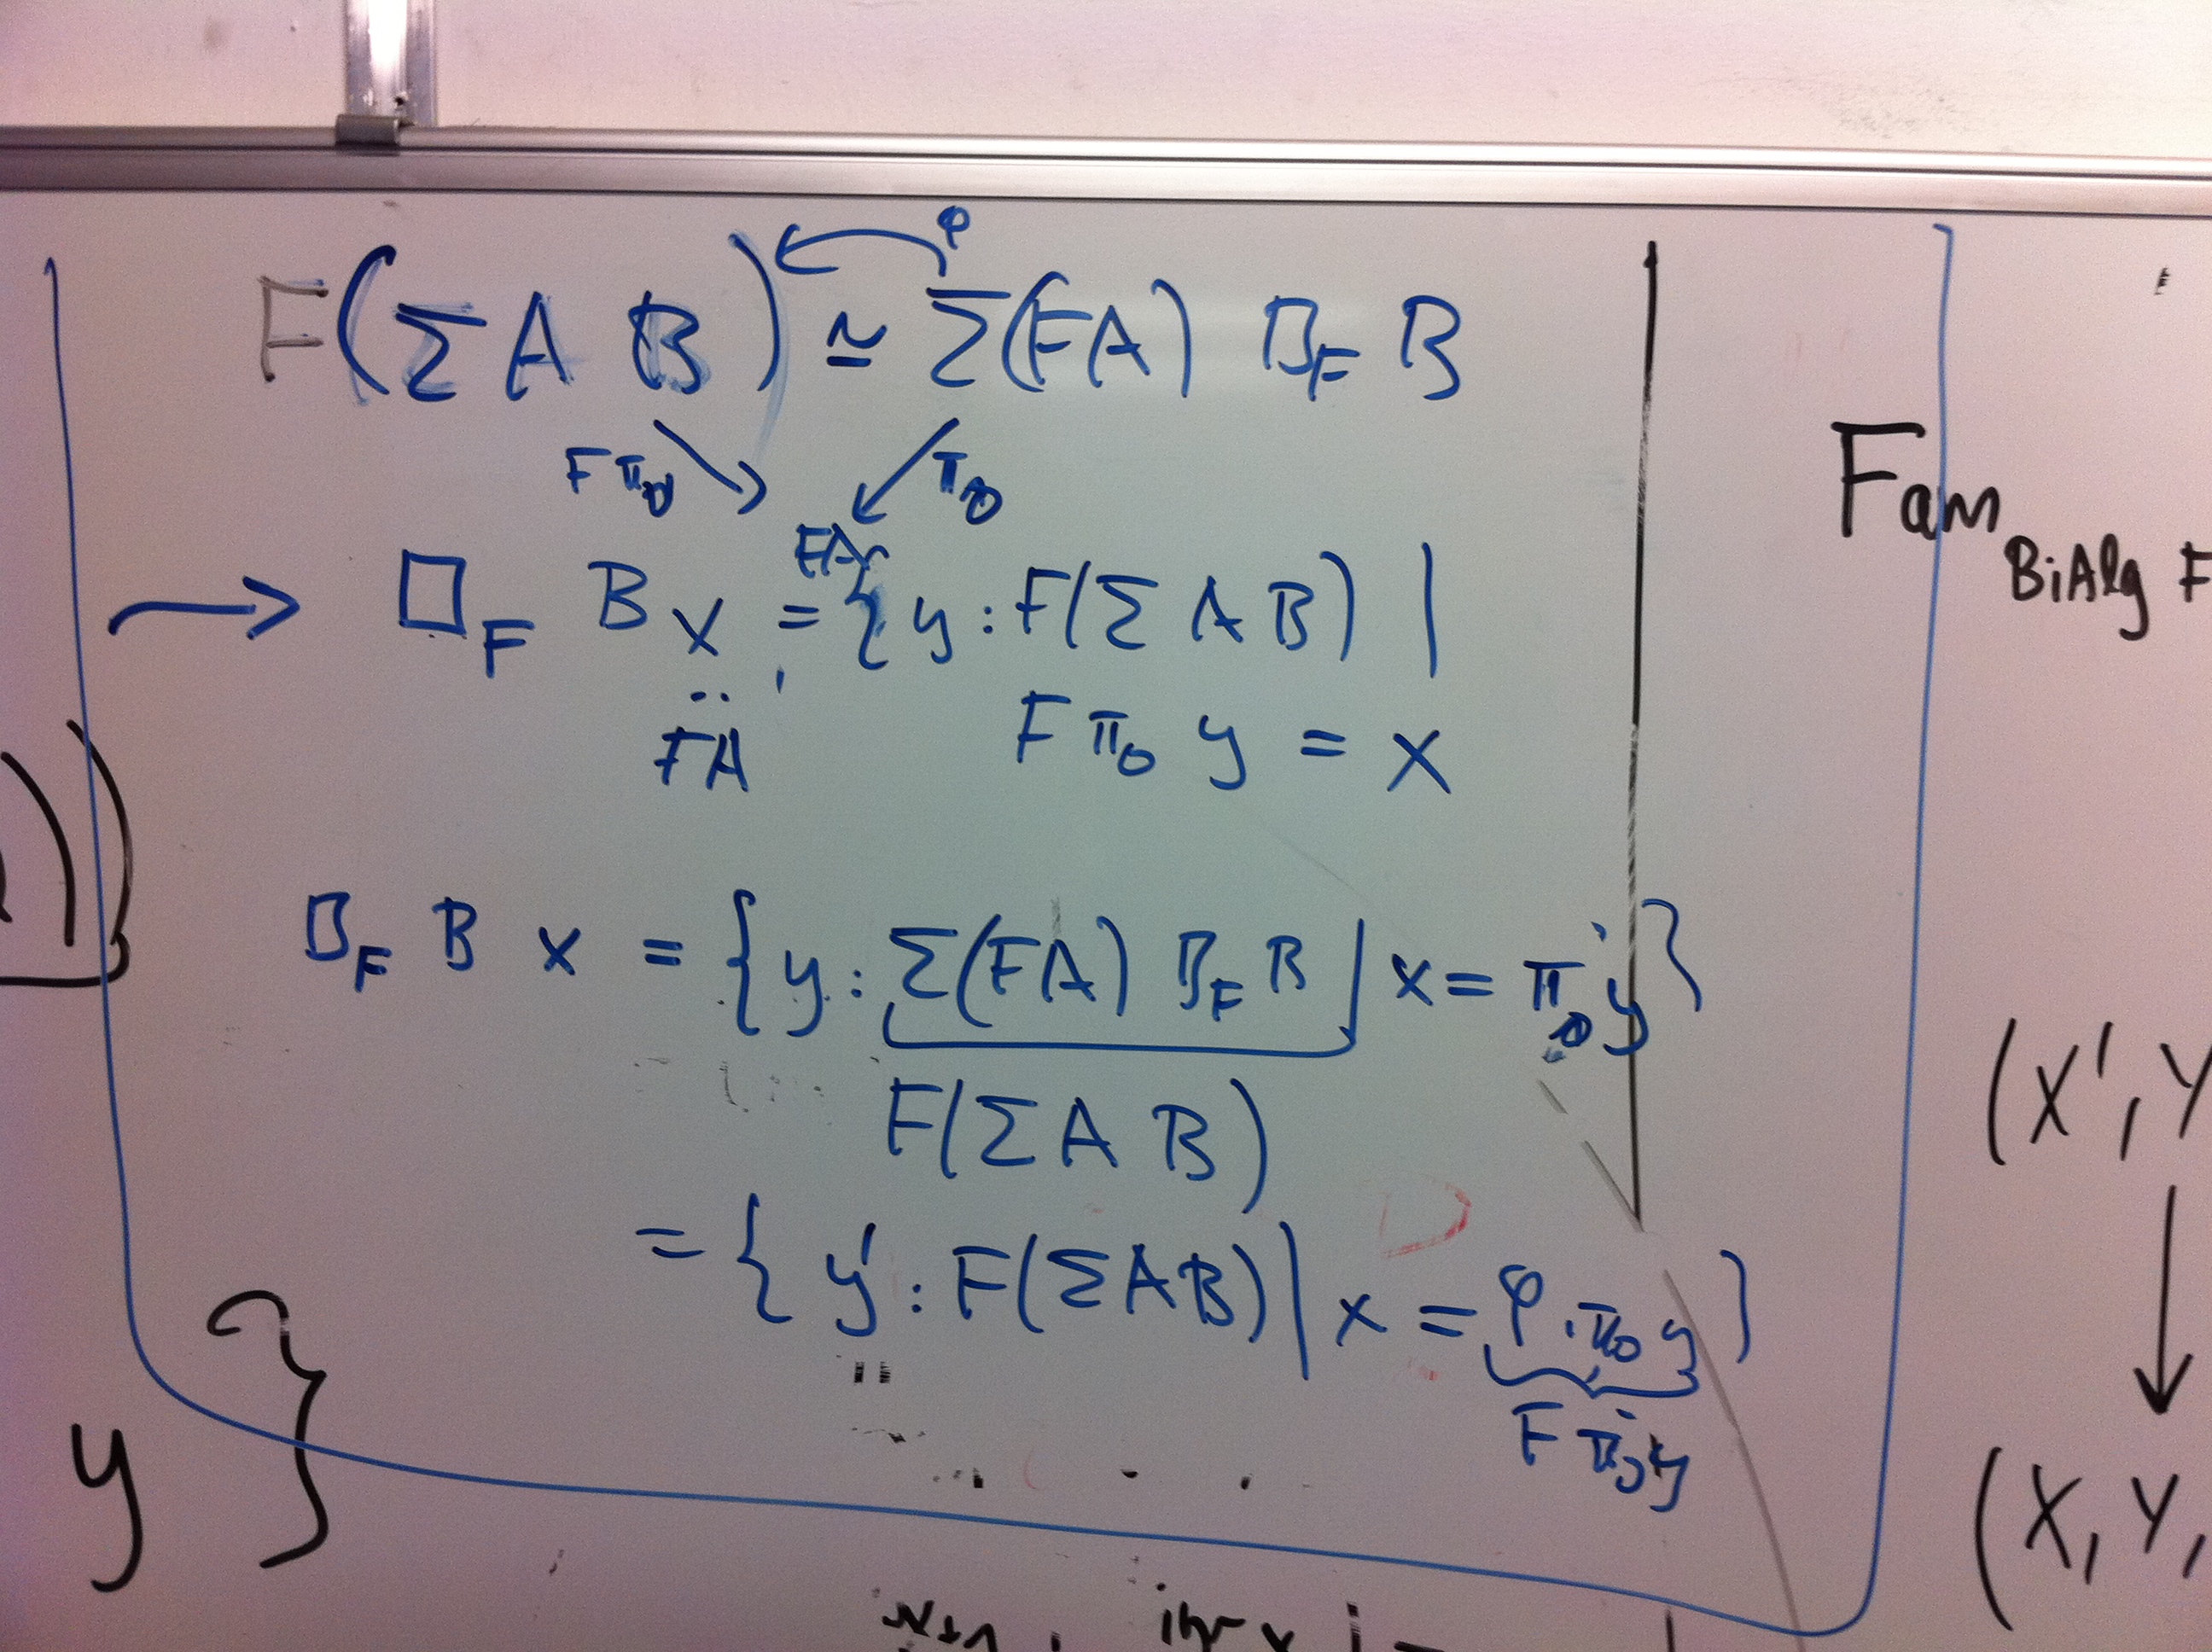 φ
F(Σ A B) ≃ Σ(FA) B_F B
Fπ₀ π₀
FA
→ □_F B x = {y : F(Σ A B) |
FA Fπ₀ y = x
B_F B x = {y : Σ(FA) B_F B | x = π₀ y}
F(Σ A B)
= {y' : F(ΣAB) | x = φ·π₀ y}
Fπ₀y
y }
Fam
BiAlg F
(X', Y
↓
(X, Y,